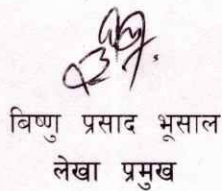 बिष्णु प्रसाद भूसाल
लेखा प्रमुख